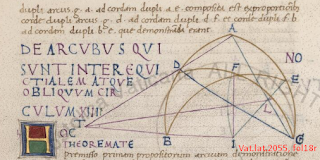 dupli arcus .g. a. ad cordam dupli a.e. composita est exproportione
corde dupli arcus .g. d. ad cordam dupli d.f. et corde dupli .f.b
ad cordam dupli b.e. que demonstrare
DE ARCUBUS QUI
SUNT INTER EQUI
CTIALEM ATQUE
OBLIQUUM CIR
CULUM XIIII
HOC
THEOREMATE
premisso primam propositorum arcuum demonstratione
A
D
F
NO
E
L
B
I
G
Vat.lat.2055.fol18r